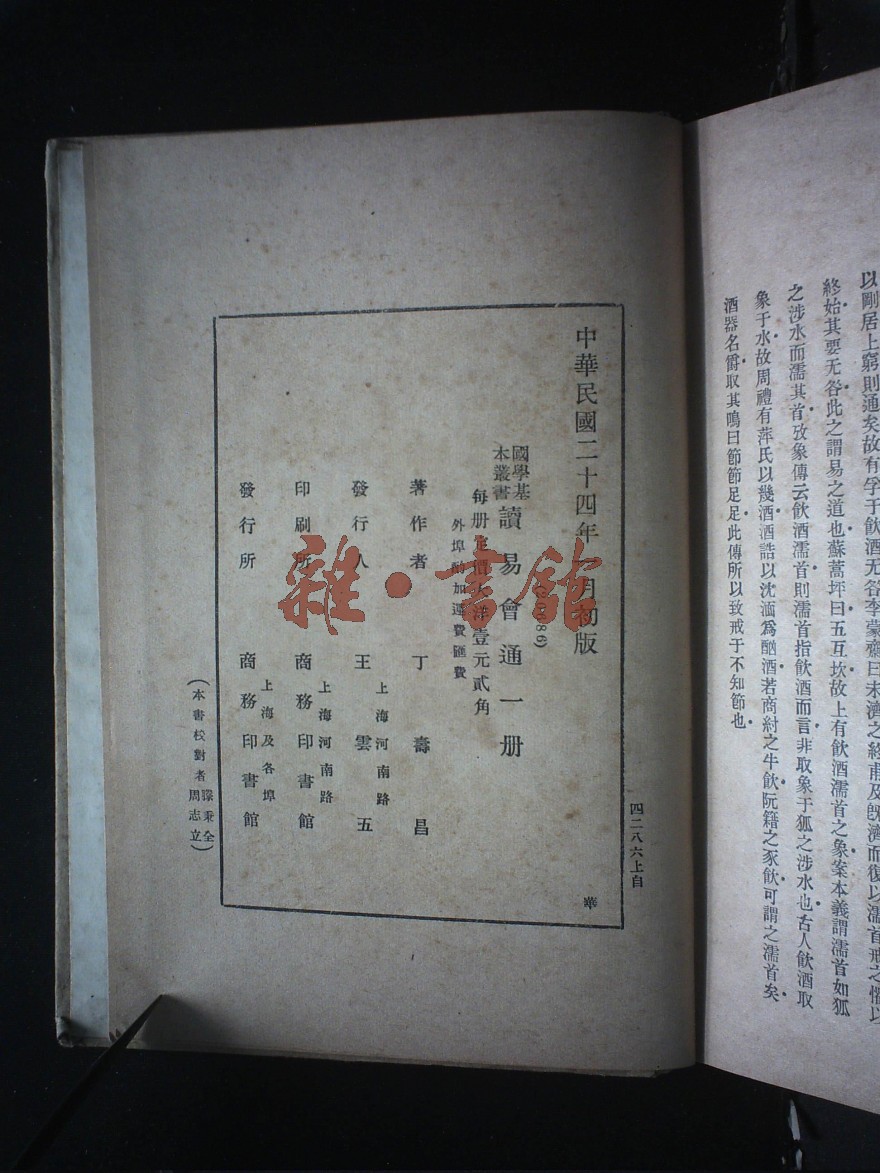 以剛居上窮則通矣故有孚于飲酒无咎李蒙齋曰未濟之終甫及旣濟而復以濡首戒之懼以
終始其要无咎此之謂易之道也蘇蒿坪曰五互坎故上有飲酒濡首之象案本義謂濡首如狐
之涉水而濡其首攷象傳云飲酒濡首則濡首指飲酒而言非取象于狐之涉水也古人飲酒取
象于水故周禮有萍氏以幾酒酒誥以沈湎爲酗酒若商紂之牛飲阮籍之豕飲可謂之濡首矣
酒器名爵取其鳴曰節節足足此傳所以致戒于不知節也
四二八六上自
中華民國二十四年 月初版
086)
國學基
本叢書
讀易會通一册
每册定價大洋壹元貳角
外埠酌加運費匯費
著作者 丁壽昌
發行人 王雲五
上海河南路
印刷所 商務印書館
上海河南路
發行所 商務印書館
上海及各埠
(本書校對者 秉全
周志立)
華
雜·書館